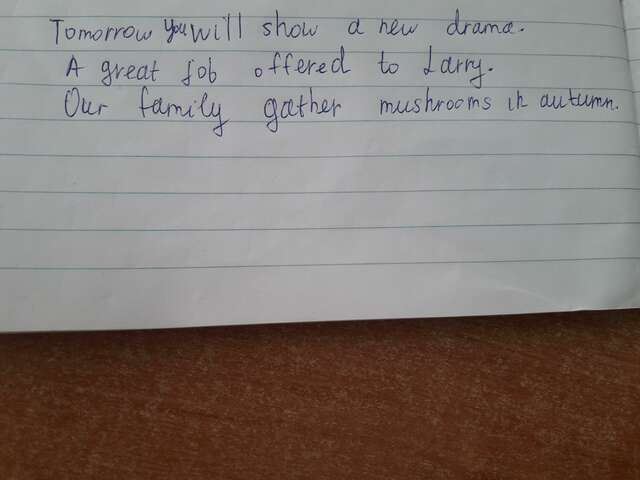 Tomorrow you will show a new drama.
A great job offered to Larry.
Our family gather mushrooms in autumn.